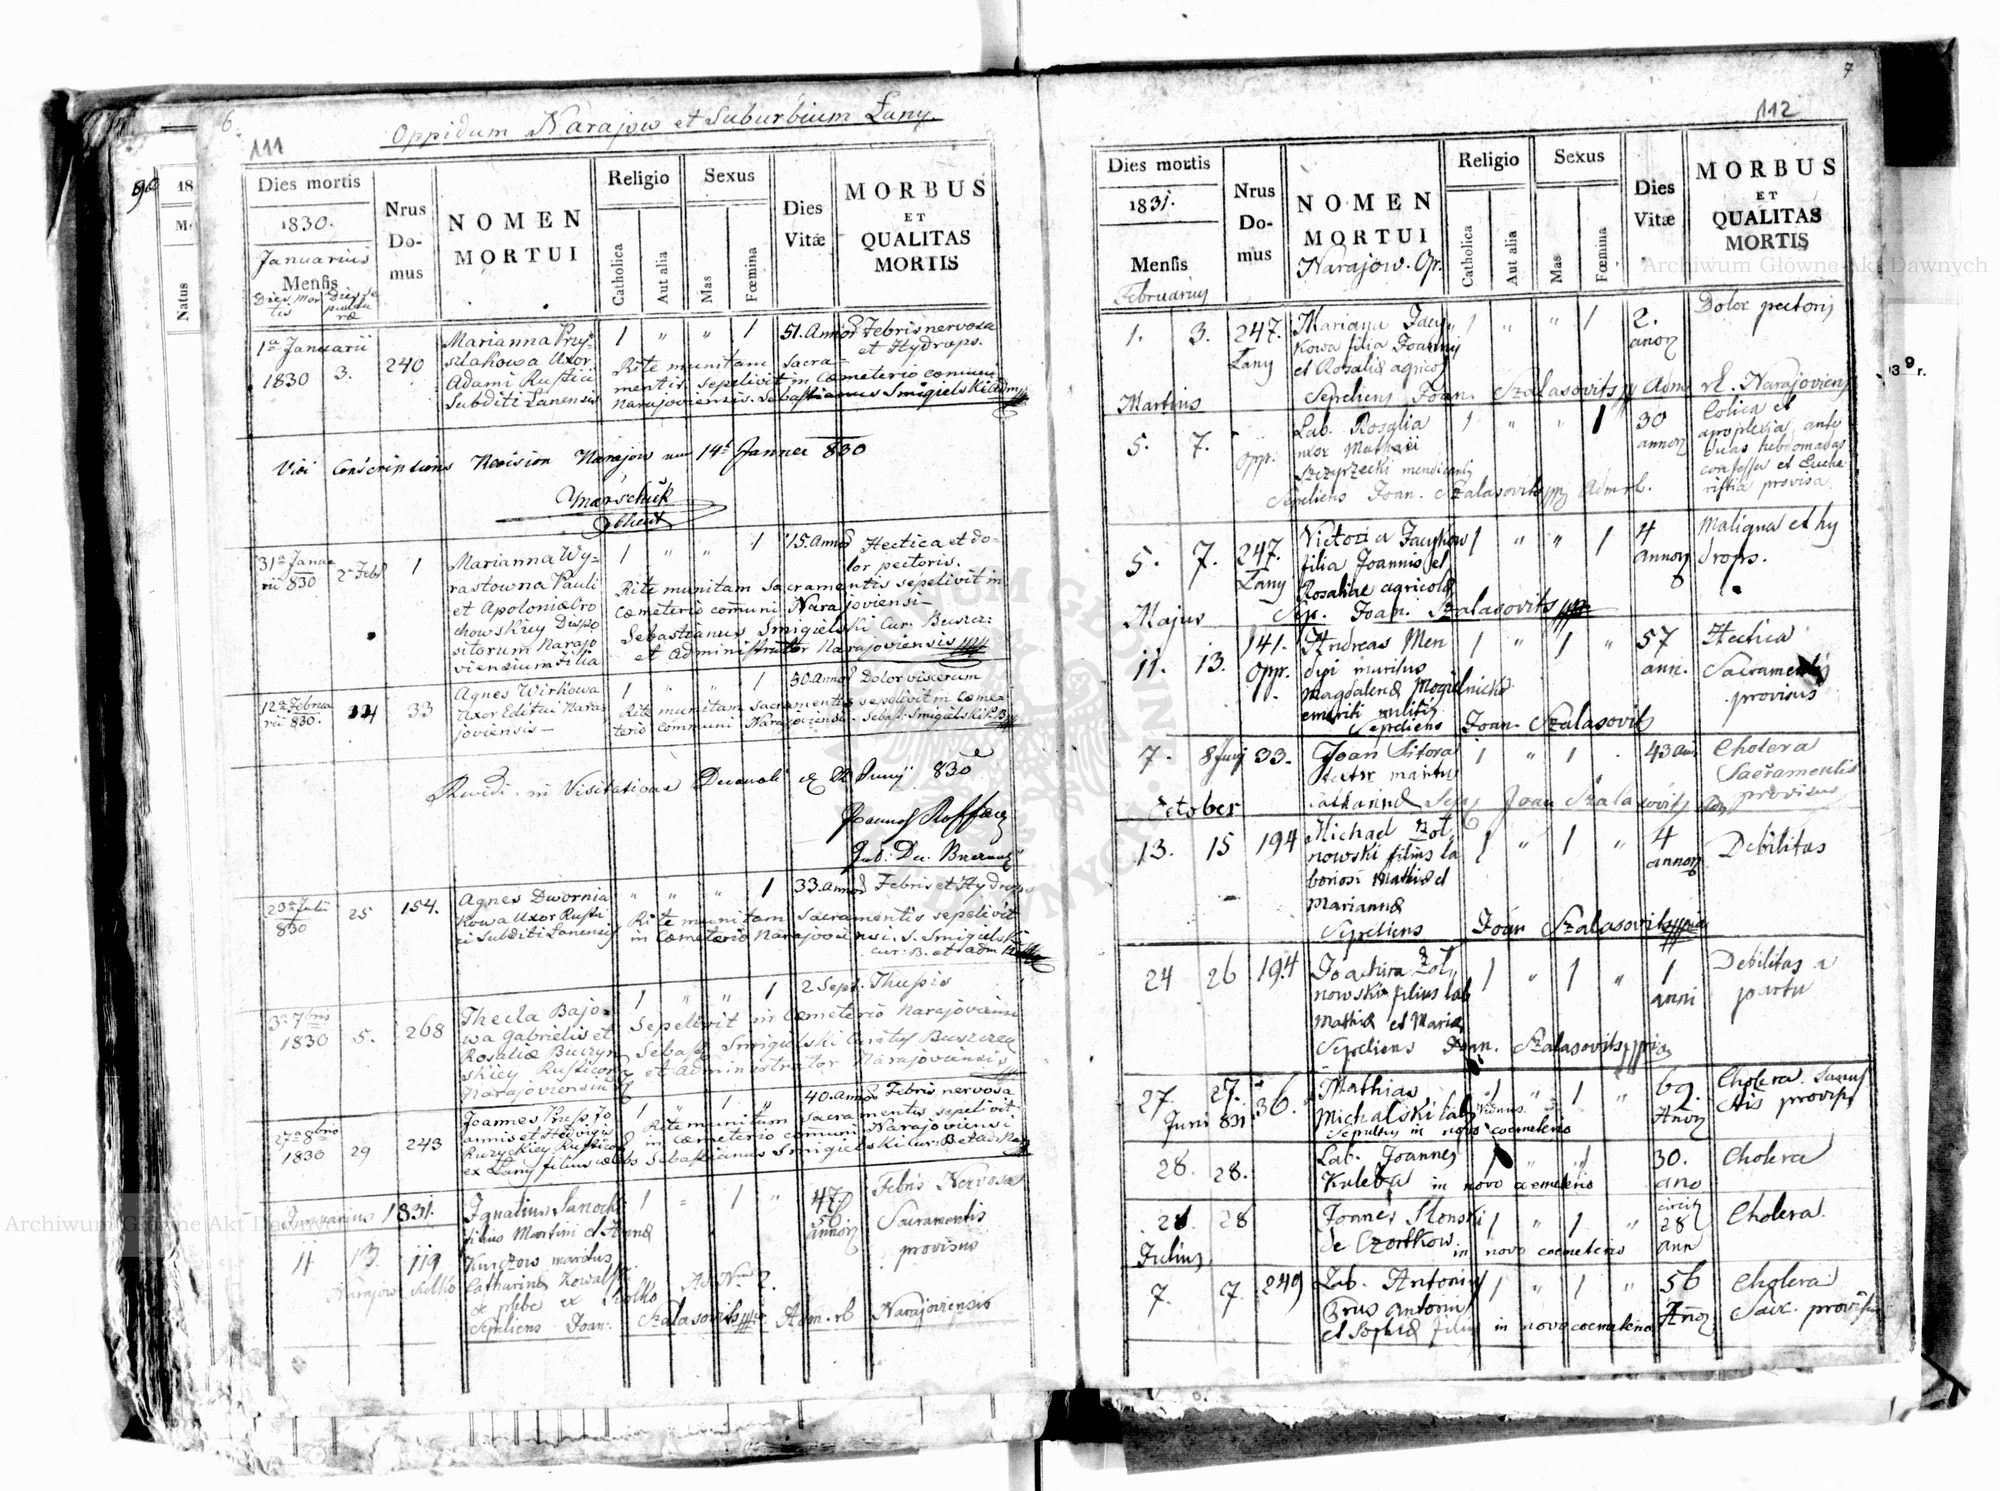 6.
111
Oppidum Narajow et Suburbium Łany.
Dies mortis
1830.
Januarius
Mensis
Dies mortis
Dies sepulturæ
Nrus Domus
NOMEN MORTUI
Religio
Catholica
Aut alia
Sexus
Mas
Fœmina
Dies Vitæ
MORBUS
ET
QUALITAS
MORTIS
1a Januarii
1830 3. 240
Marianna Przy-
szlakowa Uxor
Adami Rustici
Subditi Lanensis
1 " " 1 51. Annor Febris nervosa
et Hydrops.
Rite munitam Sacra-
mentis sepelivit in Cœmeterio communi
Narajoviensis. Sebastianus Smigielski Adm
Vidi Conscriptions Revision Narajow am 14t Janner 830
Marschick
31a Janua
rii 830 2a Febr 1
Marianna Wy-
rastowna Pauli
et Apoloniæ Oro
chowskiey Dispo
sitorum Narajo
viensium filia
1 " " 1 15. Annor Hectica et do-
lor pectoris.
Rite munitam Sacramentis sepelivit in
Cœmeterio comuni Narajoviensi
Sebastianus Smigielski Cur. Buszcz:
et Administrator Narajoviensis
12a Februa
rii 830. 14 33
Agnes Wirkowa
Uxor Editui Nara-
joviensis
1 " " 1 50. Annor Dolor viscerum
Rite munitam Sacramentis sepelivit in Cœme-
terio communi Narajoviensi. Sebast. Smigielski
Visitatione Decanali 22 Junij 830
23a Julii
830 25 154.
Agnes Dwornia
kowa Uxor Rusti
ci Subditi Lanensis
" " " 1 33. Annor Febris et Hydrops
Rite munitam Sacramentis sepelivit
in Cœmeterio Narajoviensi. S. Smigielski
Cur. B. et Adm.
3a 7bris
1830 5. 268
Thecla Bajo-
wa Gabrielis et
Rosaliæ Buczyn
skiey Rusticorum
Narajoviensium
1 " " 1 2 Sept. Thussis
Sepelivit in Cœmeterio Narajoviensi
Sebast Smigielski Curatus Buszczeu
et Administrator Narajoviensis
27a 8bris
1830 29 243
Joannes Jo
annis et Hedvigis
Rusticor
ex Łany filius cælebs
1 " 1 " 40. Annor Febris nervosa
Rite munitum Sacramentis sepelivit
in Cœmeterio comuni Narajoviensi
Sebastianus Smigielski Cur: B et Ad:
Januarius 1831.
11 13. 119
Narajow
Ignatius Sanocki
filius Martini et Annæ
maritus
Catharinæ Kowalski
de plebe ex
1 " 1 " 47
56
annor
Febris Nervosa
Sacramentis
provisus
Sepeliens Joan. Szalasovits Adm. rl Narajoviensis
7
112
Dies mortis
1831.
Mensis
Februarius
Nrus Domus
NOMEN
MORTUI
Narajow. Op.
Religio
Catholica
Aut alia
Sexus
Mas
Fœmina
Dies
Vitæ
MORBUS
ET
QUALITAS
MORTIS
1. 3. 247.
Łany
Mariana Jacy
kowa filia Joannis
et Rosaliæ agricol
1 " " 1 2.
anor
Dolor pectoris
Sepeliens Joan. Szalasovits Adm rl. Narajoviens
Martius
5. 7. Opp.
Lab. Rosalia
uxor Mathæi
Szczyrzecki mendicantis
1 " " 1 30
annor
Colica et
apoplexia ante
duas hebdomadas
confessa et Eucha
ristia provisa
Sepeliens Joan. Szalasovits Adm rl.
5. 7. 247.
Łany
Victoria Jacykow
filia Joannis et
Rosaliæ agricolæ
1 " " 1 4
annor
Maligna et hy
drops.
Majus
Sep. Joan. Szalasovits
11. 13. 141.
Opp.
Andreas Men
dysi maritus
Magdalenæ Mogielnicki
emeriti militis
1 " 1 " 57
ann.
Hectica
Sacramentis
provisus
Sepeliens Joan. Szalasovits
7. 8 Junij 33.
Joan Sitora
textor maritus
Catharinæ
1 " 1 . 43 an
Cholera
Sacramentis
provisus
Sep. Joan Szalasovits
October
13. 15 194
Michael Zol
nowski filius la
boriosi Mathiæ et
Mariannæ
1 " 1 " 4
annor
Debilitas
Sepeliens Joan Szalasovits
24 26 194
Joachim Zol
nowski filius Lab
Mathiæ et Maria
1 " 1 " 1
anni
Debilitas a
partu
Sepeliens Joan. Szalasovits
27. 27. 36.
Juni 831
Mathias
Michalski Lab. viduus
Sepultus in novo coemeterio
1 " 1 " 69.
Anor
Cholera. Sacram
tis provisus
28. 28.
Lab. Joannes
Kuleba in novo coemeterio
1 " 1 30.
ano
Cholera
28. 28
Joannes Slonski
de Czortkow.
in novo coemeterio
1 " 1 " circit
28
ann
Cholera.
Julius
7. 7. 249
Lab. Antonius
Prus Antonii
et Sophiæ filius in novo coemeterio
1 " 1 " 56
Anor
Cholera
Sacr. provisus
Archiwum Główne Akt Dawnych
Archiwum Główne Akt Dawnych